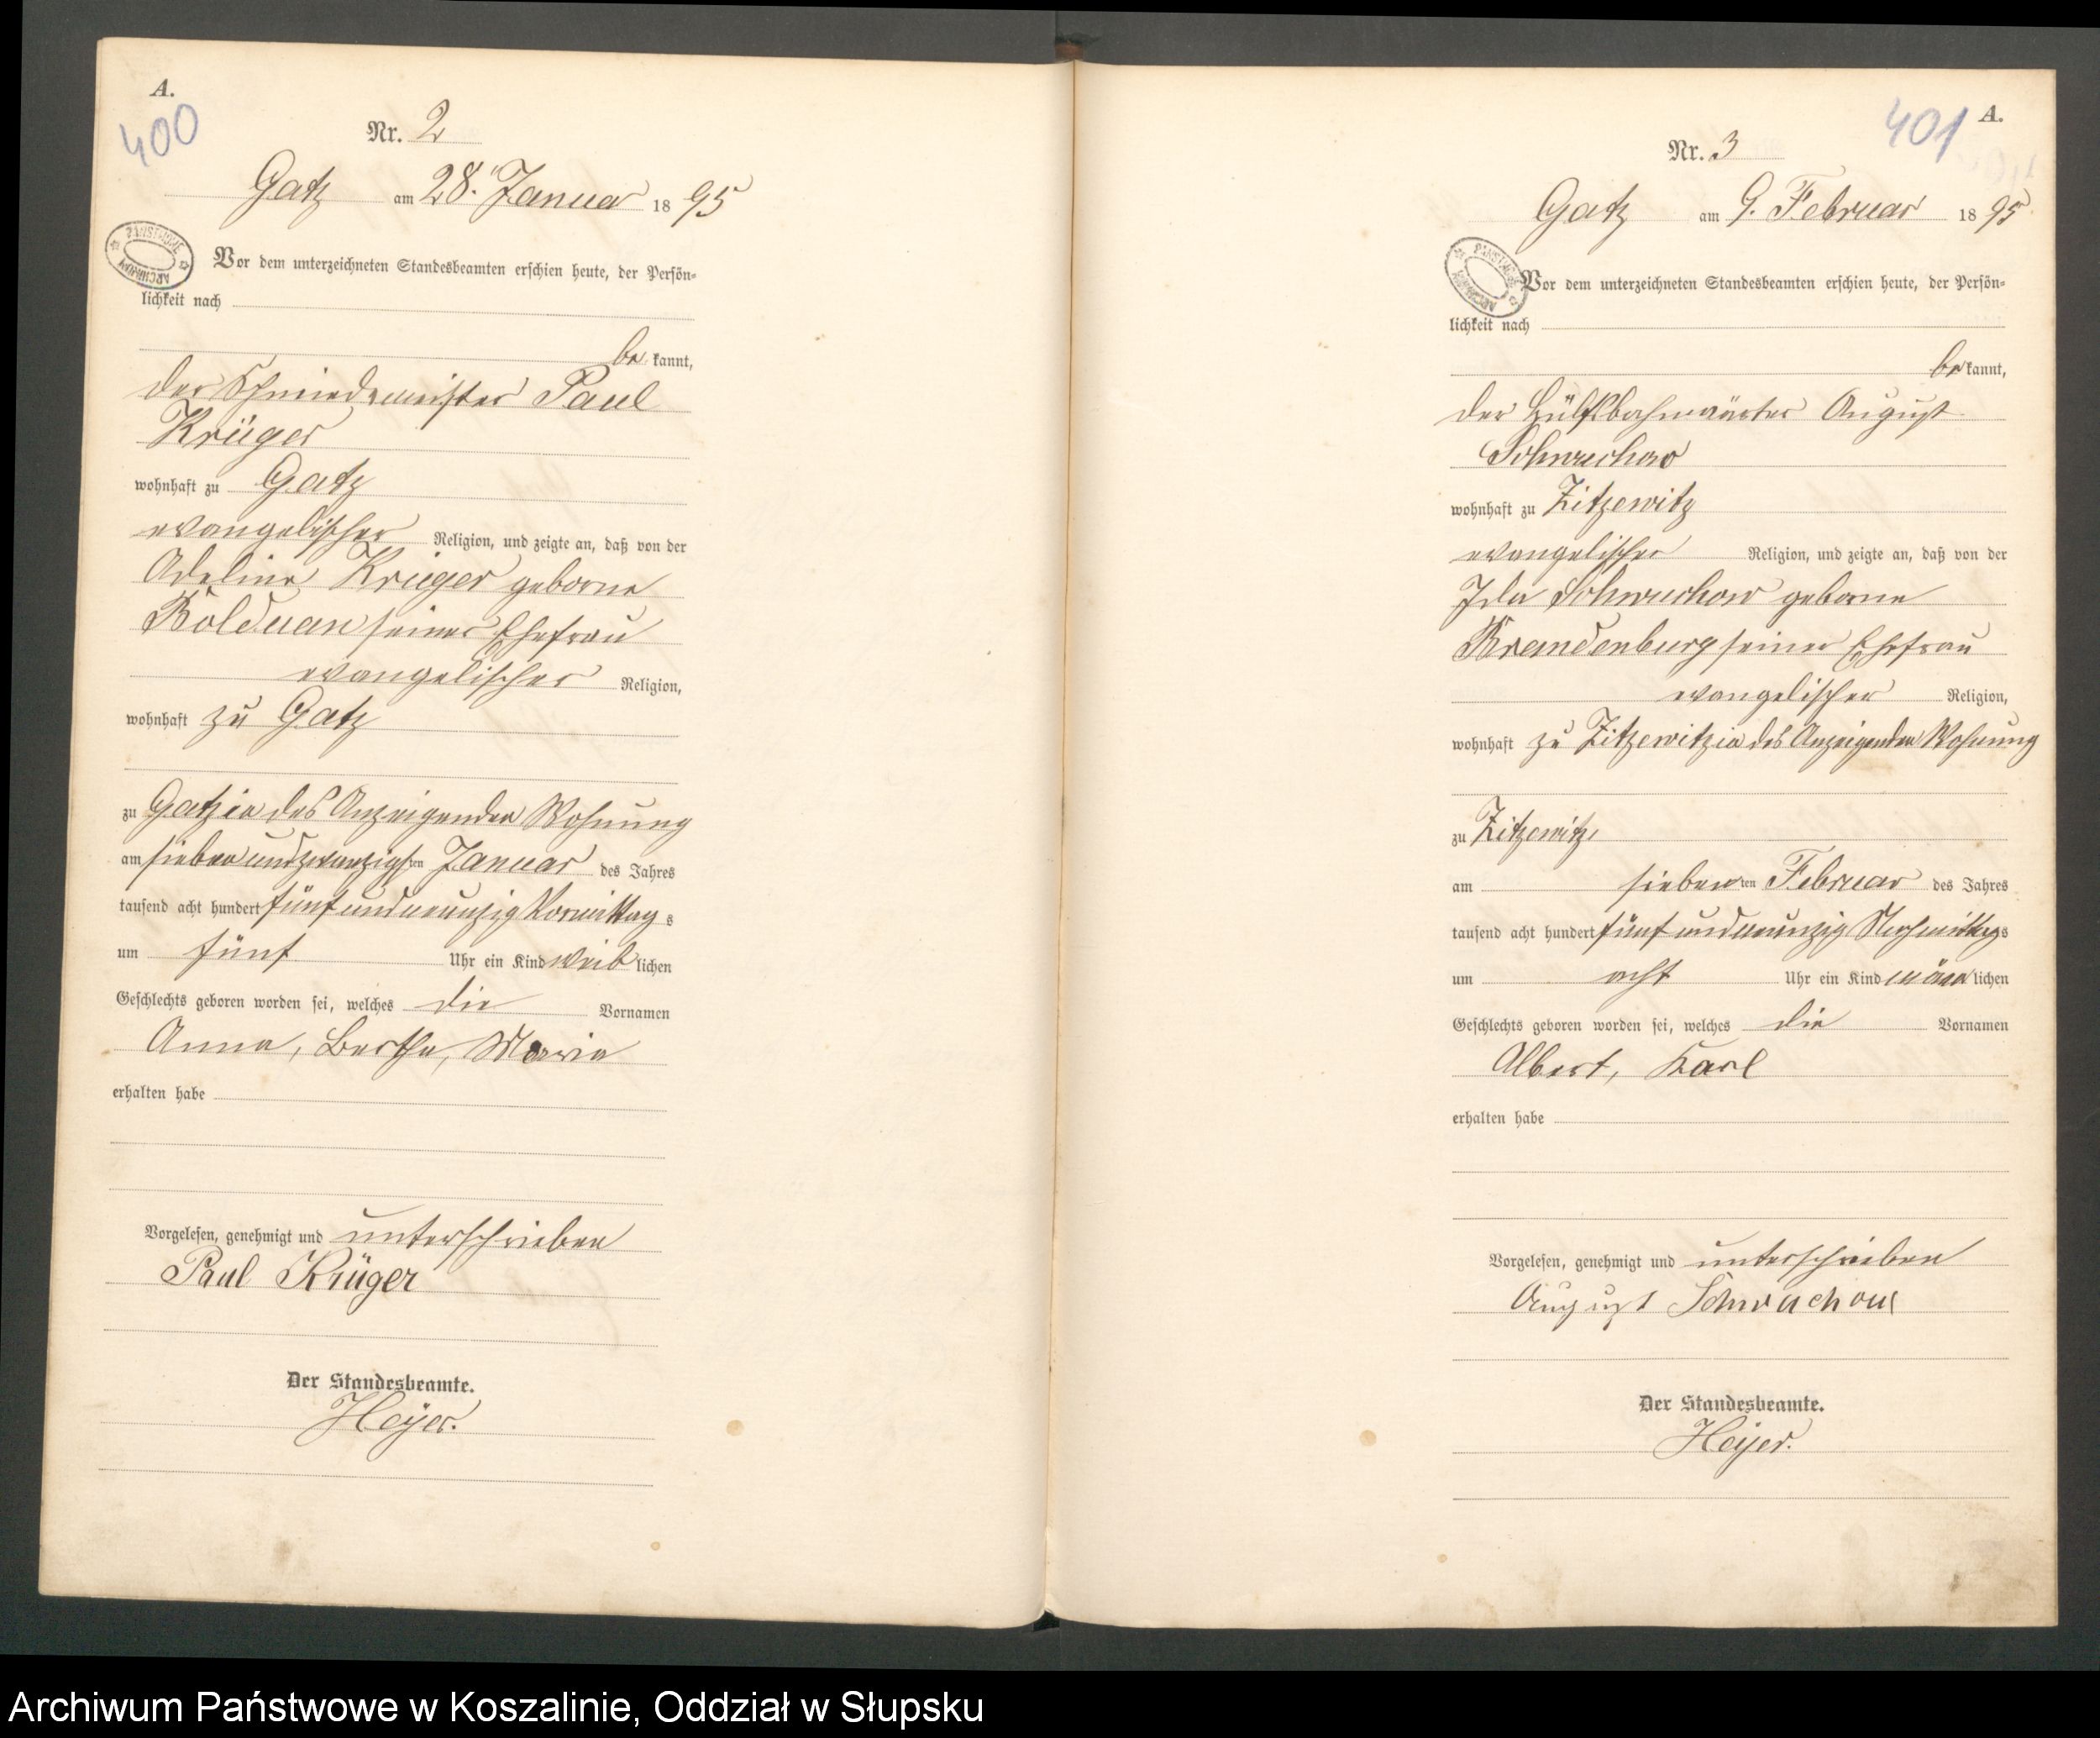 A.
400
Nr. 2
Gatz am 28. Januar 1895
PAŃSTWOWE ARCHIWUM
Vor dem unterzeichneten Standesbeamten erschien heute, der Persön-
lichkeit nach
be kannt,
der Schmiedemeister Paul
Krüger
wohnhaft zu Gatz
evangelischer Religion, und zeigte an, daß von der
Adeline Krüger geborne
Bolduan seiner Ehefrau
evangelischer Religion,
wohnhaft zu Gatz
zu Gatz in des Anzeigenden Wohnung
am siebenundzwanzigsten Januar des Jahres
tausend acht hundert fünfundneunzig Vormittags
um fünf Uhr ein Kind weiblichen
Geschlechts geboren worden sei, welches die Vornamen
Anna, Bertha, Maria
erhalten habe
Vorgelesen, genehmigt und unterschrieben
Paul Krüger
Der Standesbeamte.
Heyer.
401 A.
Nr. 3
Gatz am 9. Februar 1895
PAŃSTWOWE ARCHIWUM
Vor dem unterzeichneten Standesbeamten erschien heute, der Persön-
lichkeit nach
be kannt,
der Hülfsbahnwärter August
Schwuchow
wohnhaft zu Zitzewitz
evangelischer Religion, und zeigte an, daß von der
Ida Schwuchow geborne
Brandenburg seiner Ehefrau
evangelischer Religion,
wohnhaft zu Zitzewitz in des Anzeigenden Wohnung
zu Zitzewitz
am siebenten Februar des Jahres
tausend acht hundert fünfundneunzig Nachmittags
um acht Uhr ein Kind männlichen
Geschlechts geboren worden sei, welches die Vornamen
Albert, Karl
erhalten habe
Vorgelesen, genehmigt und unterschrieben
August Schwuchow
Der Standesbeamte.
Heyer.
Archiwum Państwowe w Koszalinie, Oddział w Słupsku